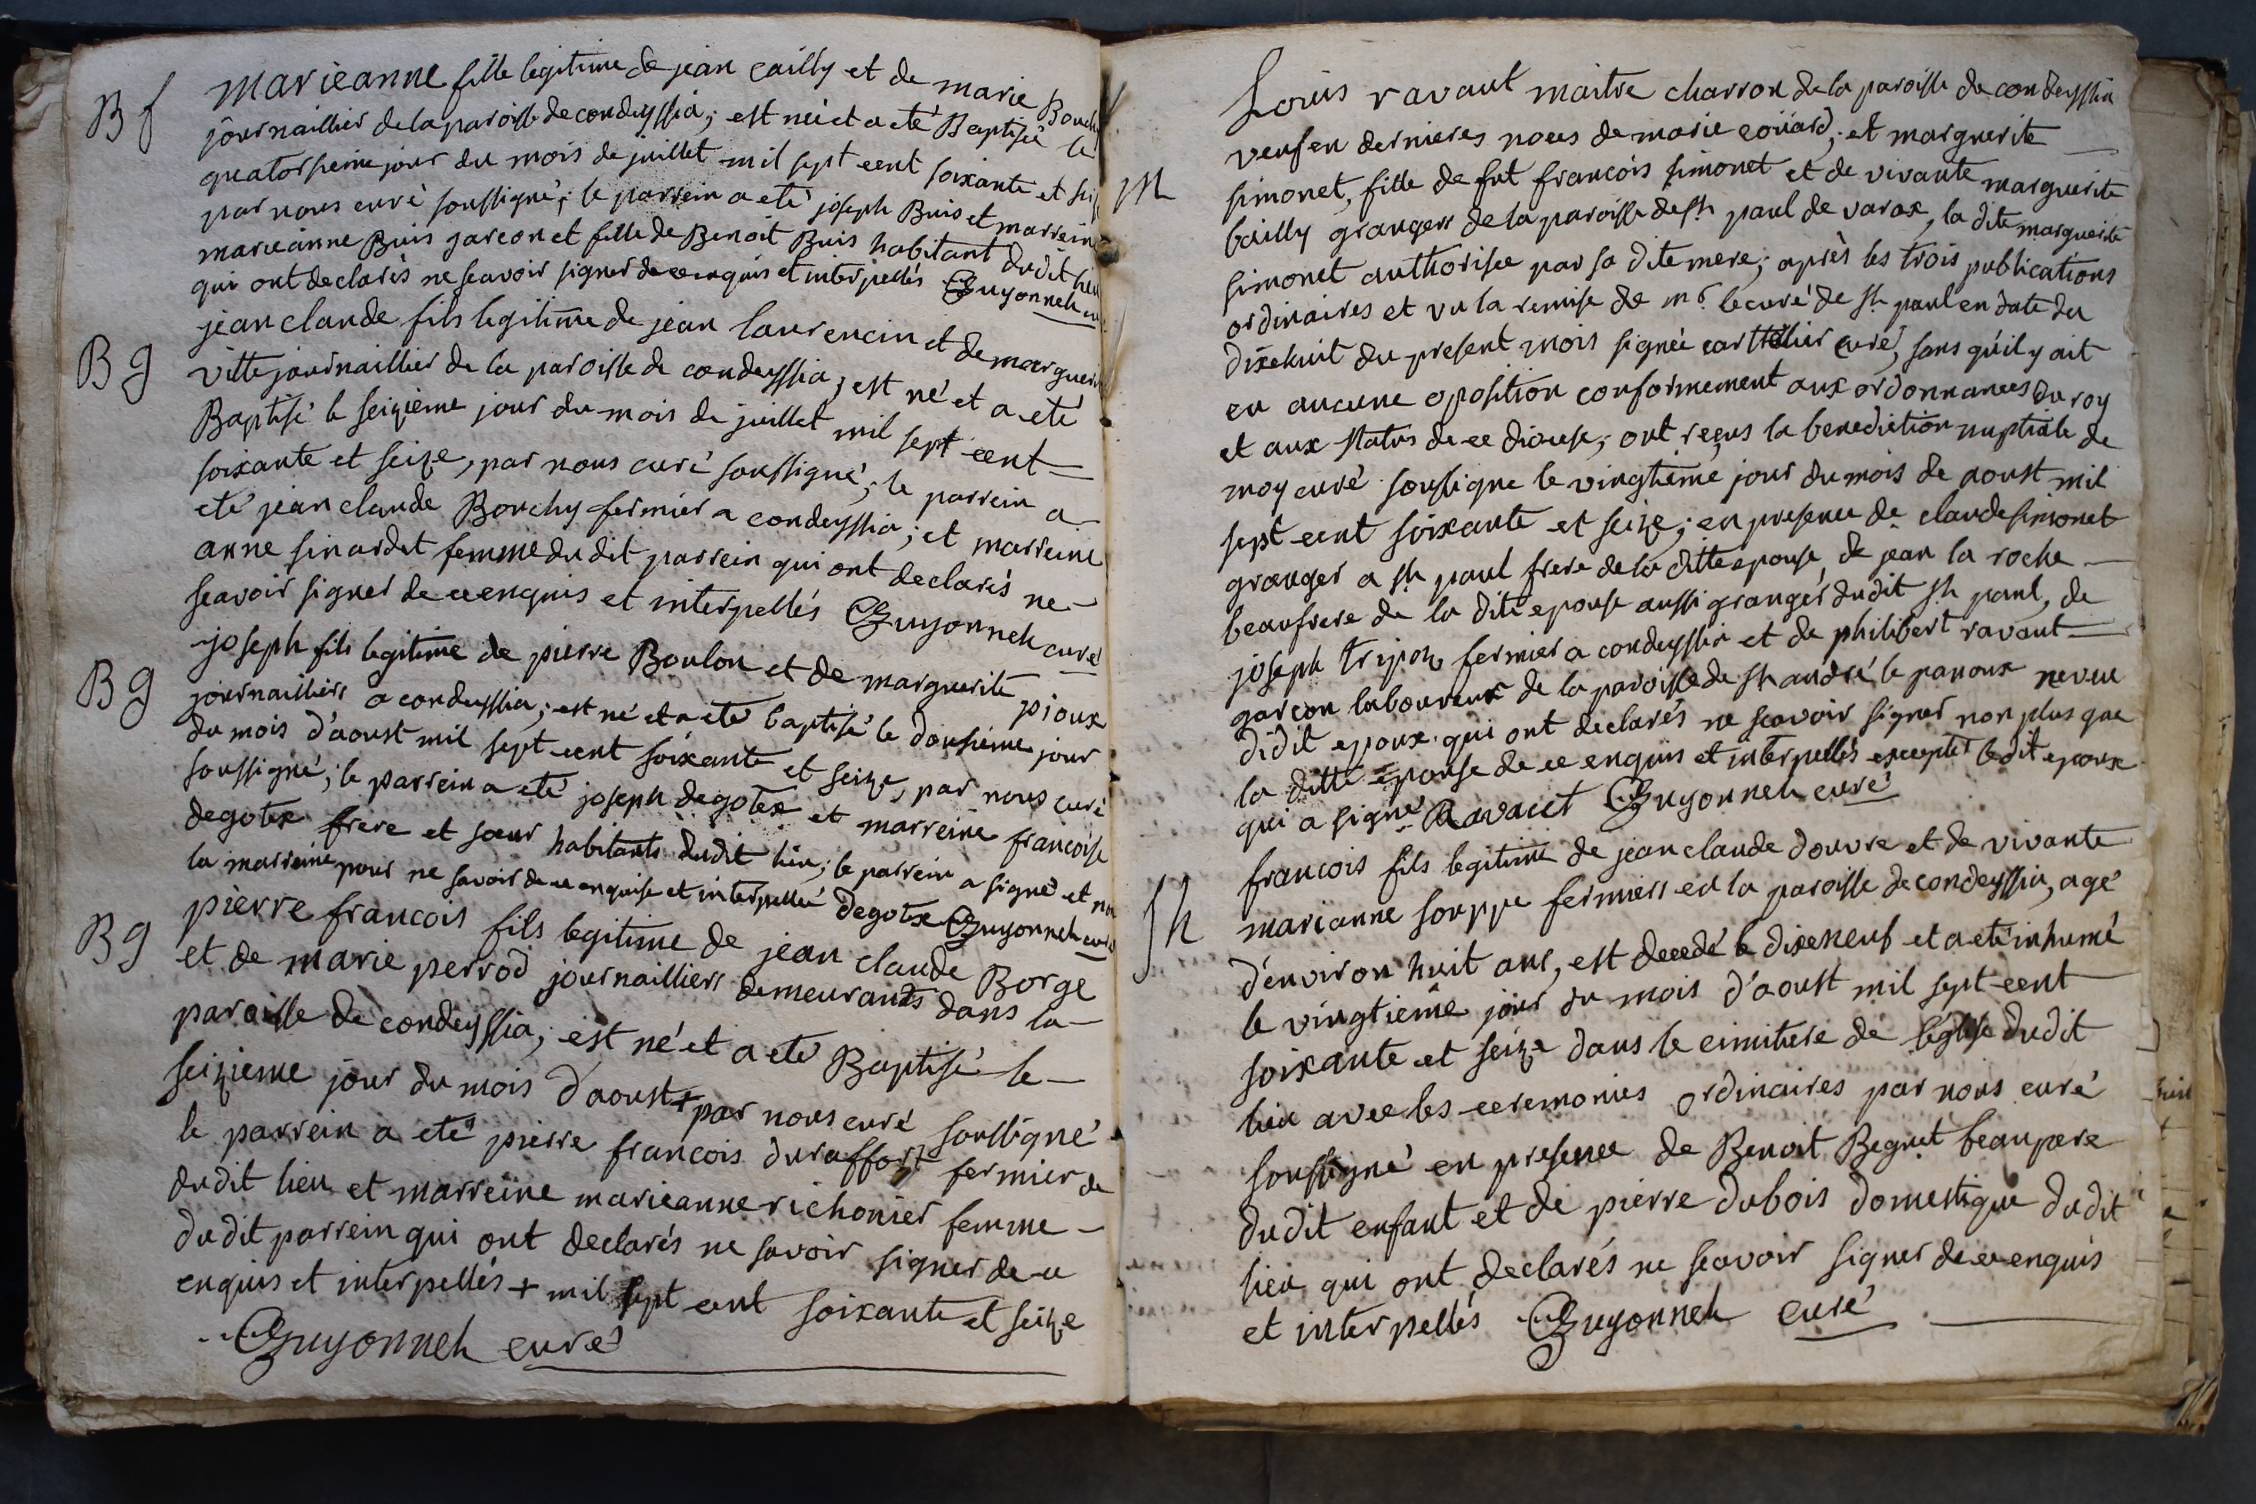 B f
Marieanne fille legitime de jean cailly et de marie Bouchy
journaillier de la paroisse de condeyssia; est néé et a eté Baptisée le
quatorsieme jour du mois de juillet mil sept cent soixante et seize
par nous curé soussigné; le parrein a eté joseph Buis et marreine
marieanne Buis garcon et fille de Benoit Buis habitant dudit lieu
qui ont declarés ne scavoir signer de ce enquis et interpellés Guyonneh curé
B g
jean claude fils legitime de jean laurencin et de marguerite
vitte journaillier de la paroisse de condeyssia; est né et a eté
Baptisé le seizieme jour du mois de juillet mil sept cent
soixante et seize, par nous curé soussigné; le parrein a
eté jean claude Bouchy fermier a condeyssia; et marreine
anne sinardet femme du dit parrein qui ont declarés ne
scavoir signer de ce enquis et interpellés Guyonneh curé
B g
joseph fils legitime de pierre Boulon et de marguerite pioux
journailliers a condeyssia; est né et a eté baptisé le dousieme jour
du mois d'aoust mil sept cent soixante et seize, par nous curé
soussigné; le parrein a eté joseph degotex et marreine francoise
degotex frere et sœur habitants dudit lieu; le parrein a signé et non
la marreine pour ne savoir de ce enquise et interpellée degotex Guyonneh curé
B g
pierre francois fils legitime de jean claude Borge
et de marie perrod journailliers demeurants dans la
paroisse de condeyssia; est né et a eté Baptisé le
seizieme jour du mois d'aoust + par nous curé soussigné
le parrein a eté pierre francois duraffort fermier de
dudit lieu et marreine marieanne richonier femme
dudit parrein qui ont declarés ne savoir signer de ce
enquis et interpellés + mil sept cent soixante et seize
Guyonneh curé
M
Louis ravaut maitre charron de la paroisse de condeyssia
veuf en dernieres noces de marie coüard; et marguerite
simonet, fille de fut francois simonet et de vivante marguerite
bailly grangers de la paroisse de St paul de varax, la dite marguerite
simonet authorisée par sa dite mere; après les trois publications
ordinaires et vu la remise de mr. le curé de St paul en date du
dixehuit du present mois signée carthelier curé, sans qu'il y ait
eu aucune oposition conformement aux ordonnances du roy
et aux status de ce diocese; ont reçus la benediction nuptiale de
moy curé soussigne le vingtieme jour du mois de aoust mil
sept cent soixante et seize; en presence de claude simonet
granger a St paul frere de la ditte epouse, de jean la roche
beaufrere de la dite epouse aussi granger dudit St paul, de
joseph tripoz fermier a condeyssia et de philibert ravaut
garcon laboureur de la paroisse de St andré le panoux neveu
dudit epoux qui ont declarés ne scavoir signer non plus que
la ditte epouse de ce enquis et interpellés excepter ledit epoux
qui a signé Ravaut Guyonneh curé
Sh
francois fils legitime de jean claude douvre et de vivante
marianne souppe fermiers en la paroisse de condeyssia, agé
d'environ huit ans, est decedé le dixeneuf et a eté inhumé
le vingtieme jour du mois d'aoust mil sept cent
soixante et seize dans le cimitiere de léglise dudit
lieu avec les ceremonies ordinaires par nous curé
soussigné en presence de Benoit Beguet beaupere
dudit enfant et de pierre dubois domestique dudit
lieu qui ont declarés ne scavoir signer de ce enquis
et interpellés Guyonneh curé